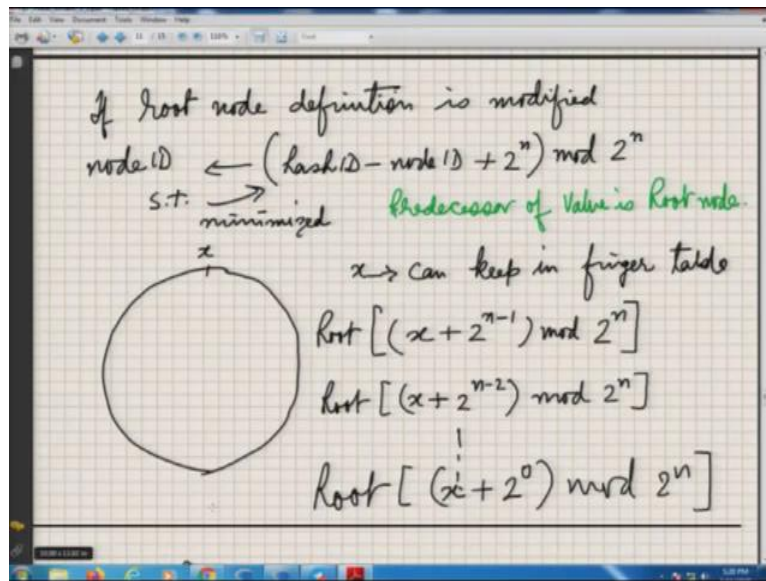 File Edit View Document Tools Window Help
11 / 15
If Root node definition is modified
node ID ← (hash ID - node ID + 2^n) mod 2^n
s.t. → minimized
Predecessor of Value is Root node.
x
x → can keep in finger table
Root [(x + 2^{n-1}) mod 2^n]
Root [(x + 2^{n-2}) mod 2^n]
Root [(x + 2^0) mod 2^n]